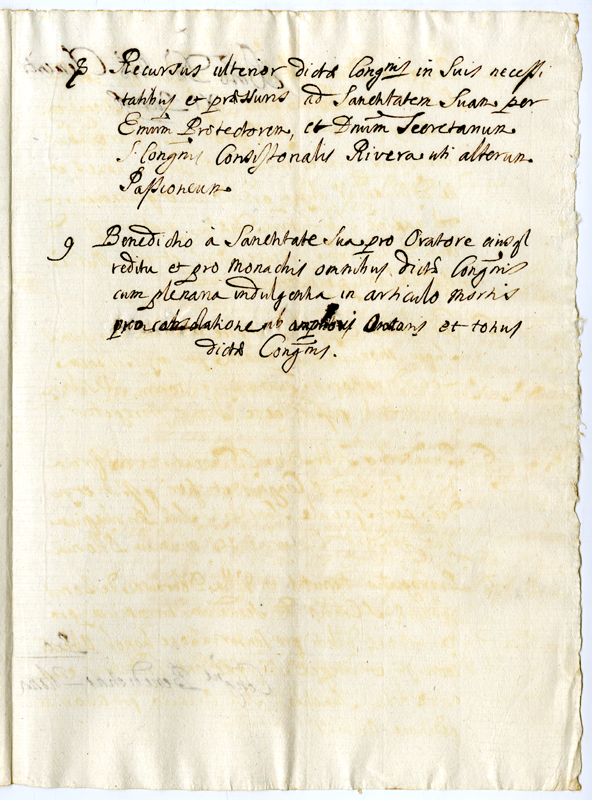 8 Recursus ulterior dictæ Congñis in Suis necessi
tatibus et præssuris ad Sanctitatem Suam per
Emum Protectorem, et Dnum Secretarium
S. Congñis Consistorialis Rivera uti alterum
Passioneum
9 Benedictio à Sanctitate Sua pro Oratore eiusq
reditu et pro Monachis omnibus dictæ Congñis
cum plenaria indulgentia in articulo mortis
pro consolatione ub Oratoris et totius
dictæ Congñis.